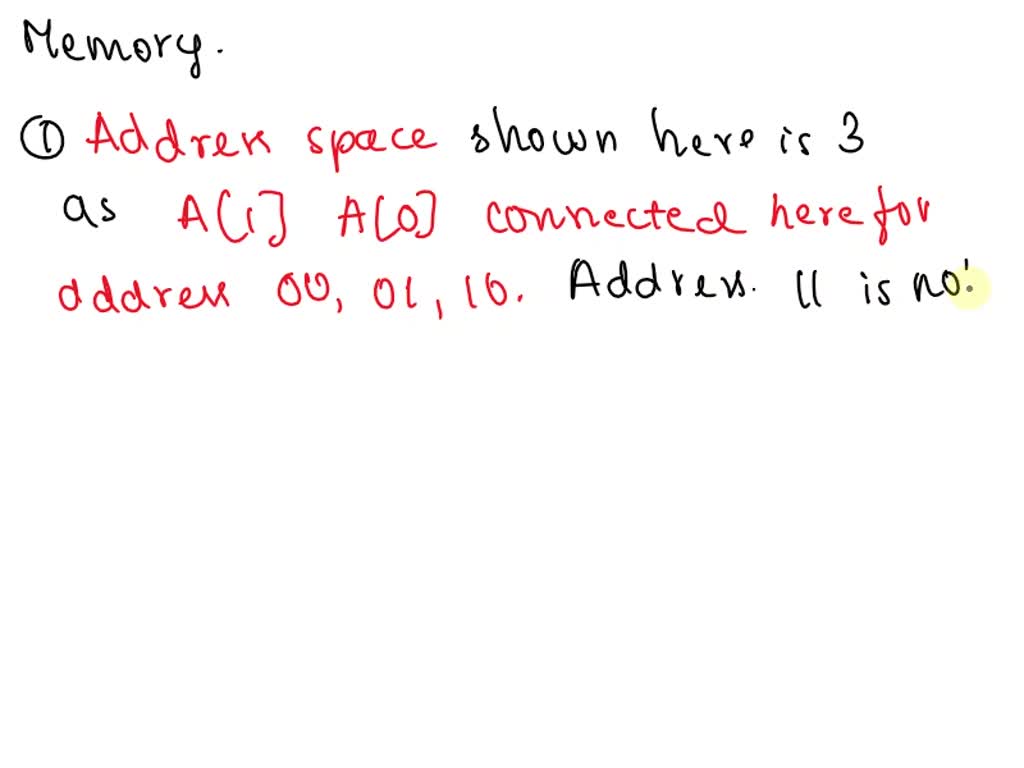 Memory.
① Address space shown here is 3
as A[1] A[0] connected here for
address 00, 01, 10. Address. 11 is not